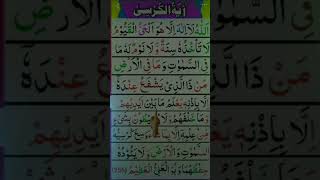 آيَةُ الْكُرْسِيّ
اَللّٰهُ لَاۤ اِلٰهَ اِلَّا هُوَ اَلْحَیُّ الْقَیُّوْمُ
لَا تَاْخُذُهٗ سِنَةٌ وَّلَا نَوْمٌ لَهٗ مَا
فِی السَّمٰوٰتِ وَمَا فِی الْاَرْضِ
مَنْ ذَا الَّذِیْ یَشْفَعُ عِنْدَهٗۤ
اِلَّا بِاِذْنِهٖ یَعْلَمُ مَا بَیْنَ اَیْدِیْهِمْ
وَمَا خَلْفَهُمْ وَلَا یُحِیْطُوْنَ بِشَیْءٍ
مِّنْ عِلْمِهٖۤ اِلَّا بِمَا شَآءَ وَسِعَ كُرْسِیُّهُ
السَّمٰوٰتِ وَالْاَرْضَ وَلَا یَئُوْدُهٗ
حِفْظُهُمَا وَهُوَ الْعَلِیُّ الْعَظِیْمُ (255)